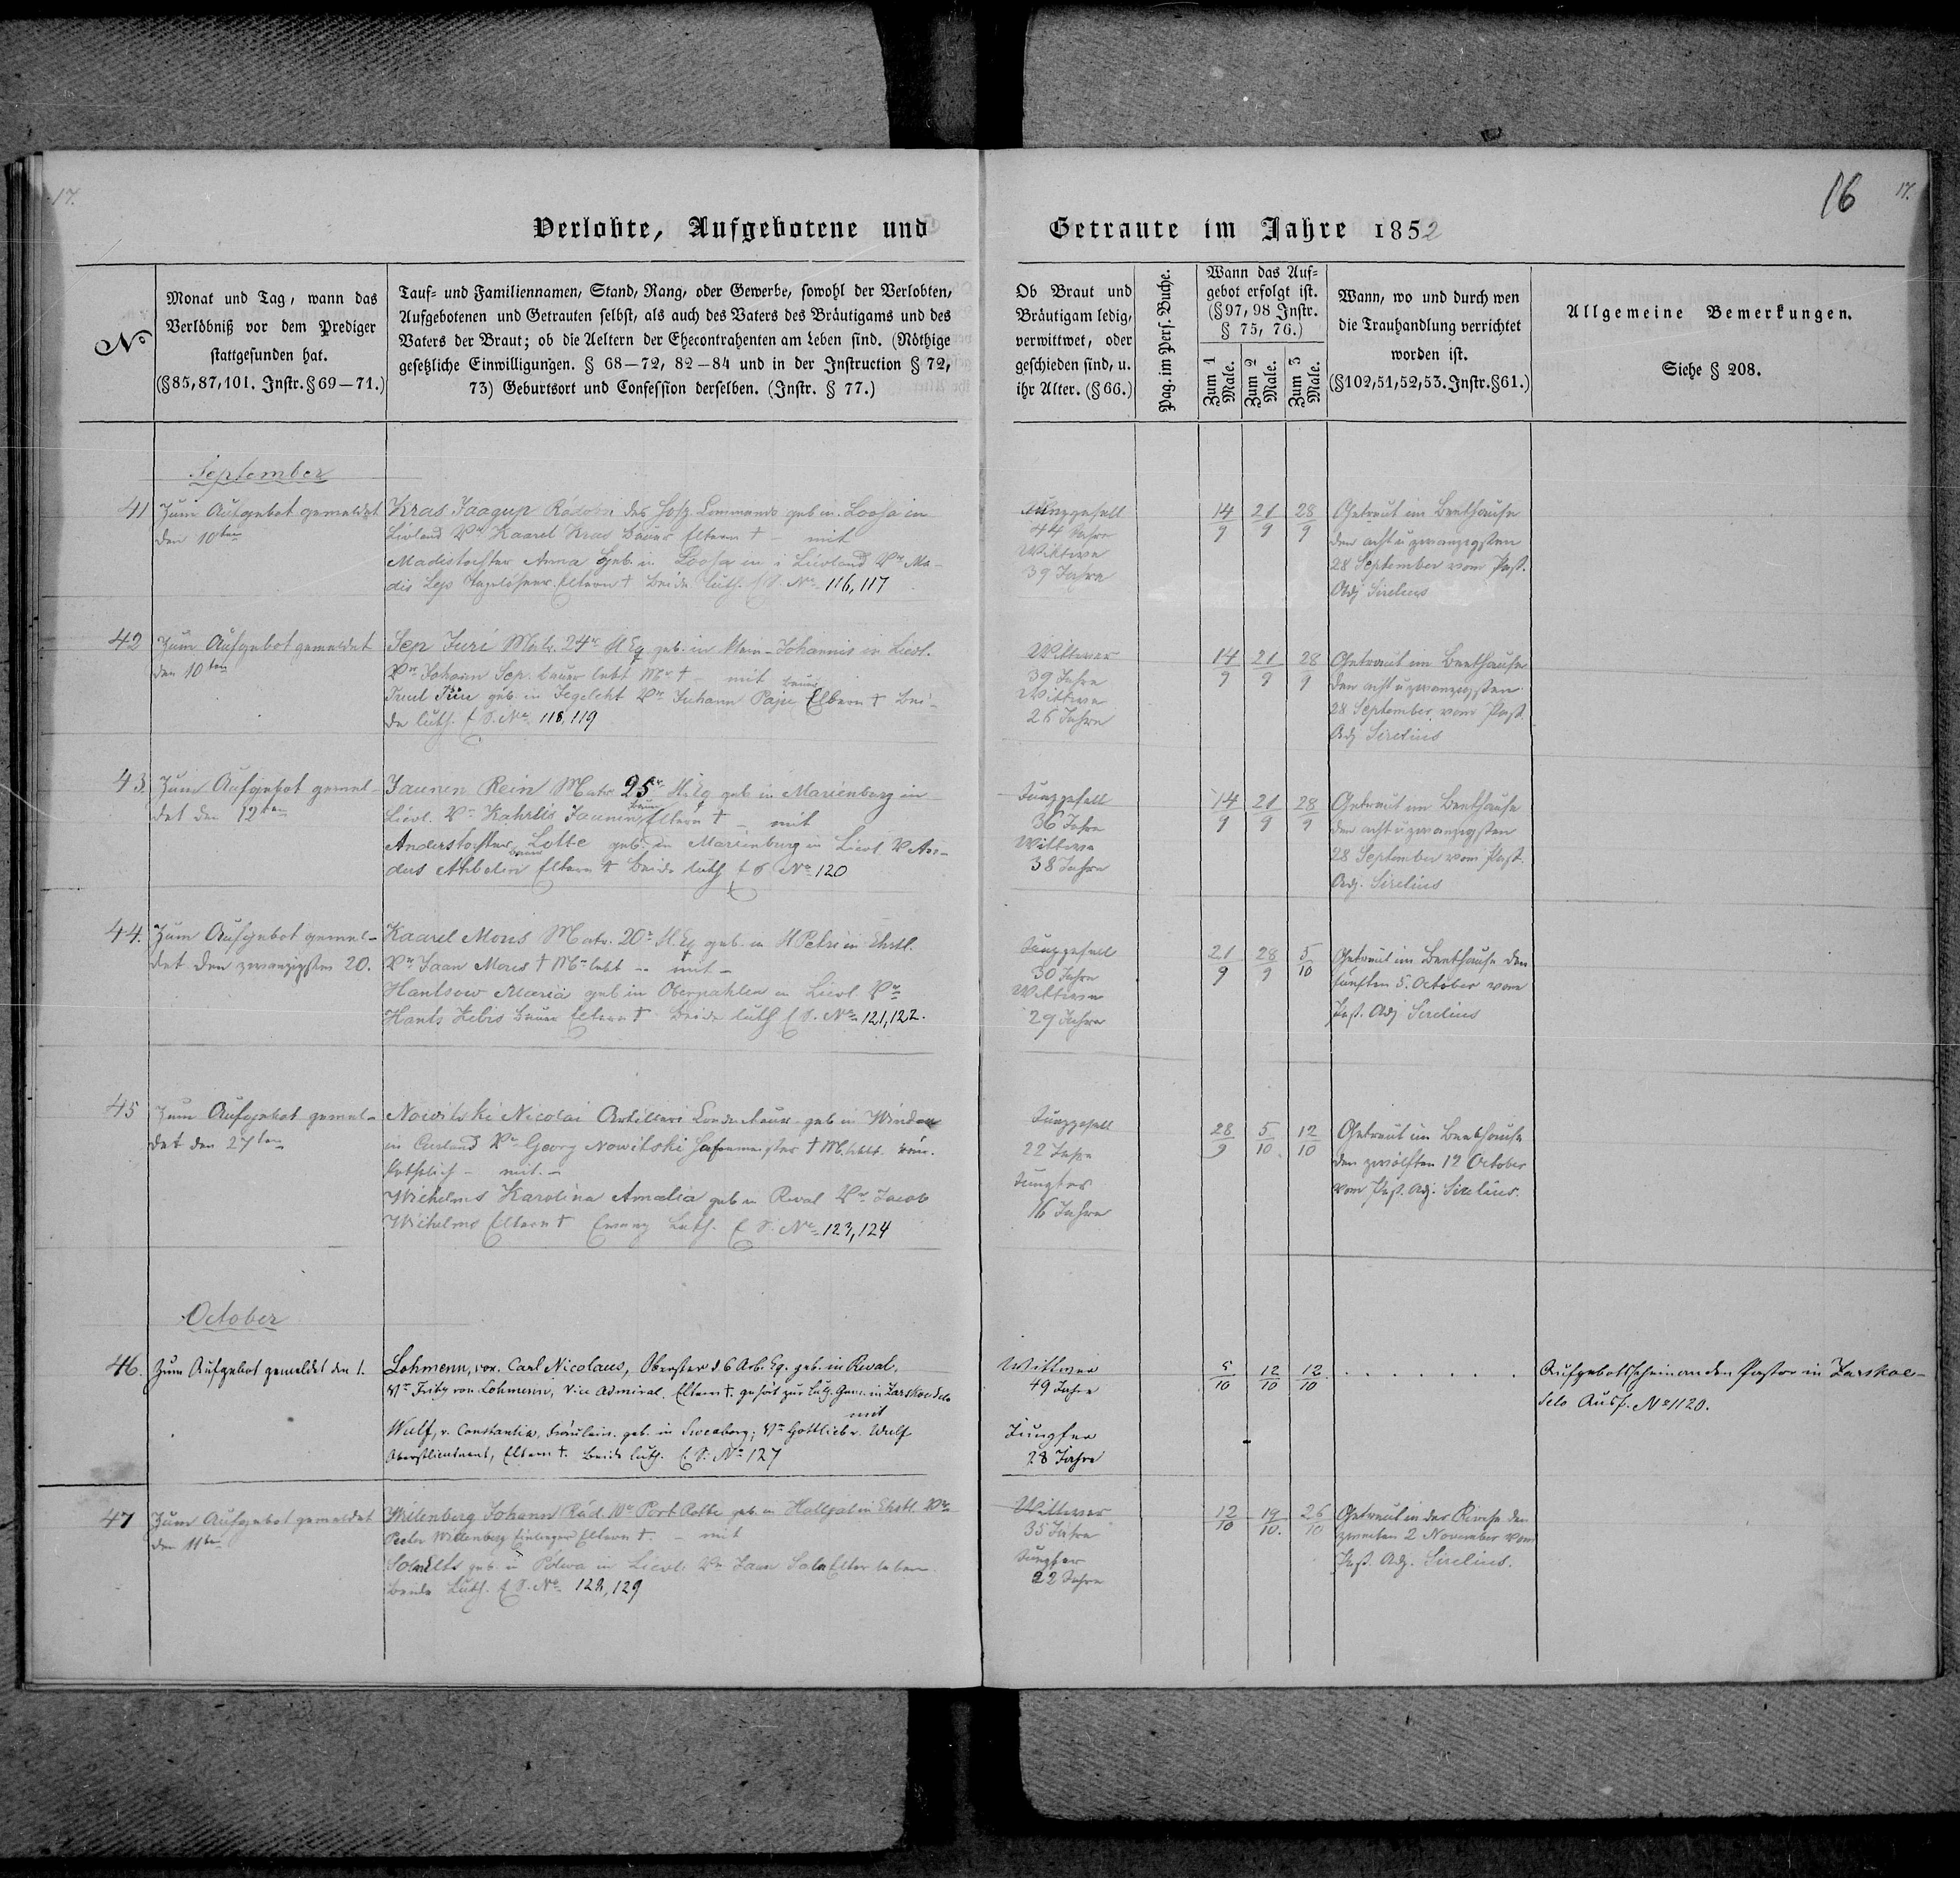 17.
16
17.
Verlobte, Aufgebotene und Getraute im Jahre 1852
No
Monat und Tag, wann das
Verlöbniß vor dem Prediger
stattgefunden hat.
(§85,87,101. Instr.§69—71.)
Tauf= und Familiennamen, Stand, Rang, oder Gewerbe, sowohl der Verlobten,
Aufgebotenen und Getrauten selbst, als auch des Vaters des Bräutigams und des
Vaters der Braut; ob die Aeltern der Ehecontrahenten am Leben sind. (Nöthige
gesetzliche Einwilligungen. § 68—72, 82—84 und in der Instruction § 72,
73) Geburtsort und Confession derselben. (Instr. § 77.)
Ob Braut und
Bräutigam ledig,
verwittwet, oder
geschieden sind, u.
ihr Alter. (§66.)
Pag. im Pers. Buche.
Wann das Auf=
gebot erfolgt ist.
(§97, 98 Instr.
§ 75, 76.)
Zum 1 Male.
Zum 2 Male.
Zum 3 Male.
Wann, wo und durch wen
die Trauhandlung verrichtet
worden ist.
(§102,51,52,53.Instr.§61.)
Allgemeine Bemerkungen.
Siehe § 208.
September
41
Zum Aufgebot gemeldet
den 10ten
Kras Jaagup des Hosp. Commando geb. in Looja in
Livland Vr Kaarel Kras Bauer Eltern † – mit
Madistochter Anna geb. in Looja in Livland Vr Ma-
dis Lep Eltern † beide luth. No 116, 117
Junggesell
44 Jahre
Wittwe
39 Jahre
14/9 21/9 28/9
Getraut im Beethause
den acht u zwanzigsten
28 September vom Past.
Adj Sirelius
42
Zum Aufgebot gemeldet
den 10ten
Sep Juri Matr. 24r Fl Eq geb. in Klein-Johannis in Livl.
Vr Johann Sep. Bauer lebt Mr † – mit
geb. in Jegelcht Vr Juhann Bauer Eltern † bei-
de luth. No 118, 119
Wittwer
39 Jahre
Wittwe
26 Jahre
14/9 21/9 28/9
Getraut im Beethause
den acht u zwanzigsten
28 September vom Past.
Adj Sirelius
43.
Zum Aufgebot gemel-
det den 12ten
Jaunen Rein Matr. 25r Fl Eq geb in Marienburg in
Livl. Vr Kahrlis Jaunen Bauer Eltern † – mit
Anderstochter Lotte geb. in Marienburg in Livl. V An-
dus Bauer Eltern † beide luth No 120
Junggesell
36 Jahre
Wittwe
38 Jahre
14/9 21/9 28/9
Getraut im Beethause
den acht u zwanzigsten
28 September vom Past.
Adj. Sirelius
44.
Zum Aufgebot gemel-
det den zwanzigsten 20.
Kaarel Mons Matr. 20r Fl. Eq geb. in St Petri in Ehstl.
Vr Jaan Mons † Mr lebt – mit –
Hantsow Maria geb in Oberpahlen in Livl. Vr
Hants Bauer Eltern † beide luth No 121, 122.
Junggesell
30 Jahre
Wittwe
29 Jahre
21/9 28/9 5/10
Getraut im Beethause den
fünften 5. October vom
Past. Adj Sirelius
45
Zum Aufgebot gemel-
det den 27ten
Nowitski Nicolai Artilleri geb in Windau
in Curland Vr Georg Nowitski Hafenmeister † M. lebt. röm.
katholisch – mit –
Wichelms Karolina Amalia geb in Reval Vr Jacob
Wichelms Eltern † Luth. No 123, 124
Junggesell
22 Jahre
Jungfer
16 Jahre
28/9 5/10 12/10
Getraut im Beethause
den zwölften 12 October
vom Past. Adj. Sirelius.
October
46.
Zum Aufgebot gemeldet den 1.
Lohmenn, von. Carl Nicolaus, Oberster d. 6 Arb. Eq. geb. in Reval,
Vr Fritz von Lohmenn, Vice Admiral. Eltern †. gehört zur luth. Gem. in Zarskoe Selo
mit
Wulf, v. Constantia, Fräulein. geb. in Sweaborg; Vr Gottlieb v. Wulf
Oberstlieutnent, Eltern †. beide luth. No 127
Wittwer
49 Jahre
Jungfer
28 Jahre
5/10 12/10 12/10
Aufgebotsschein an den Pastor in Zarskoe-
Selo Ausf. No 1120.
47
Zum Aufgebot gemeldet
den 11ten
Milenberg Johann Port Rotte geb. in Halljal in Ehstl. Vr
Peeter Millenberg Eltern †. – mit
geb. in Pölwa in Livl. Vr Jaan Eltern leben
beide Luth. No 128, 129
Wittwer
35 Jahre
Jungfer
22 Jahre
12/10 19/10. 26/10
Getraut in der Kirche den
zweiten 2 November vom
Past. Adj. Sirelius.